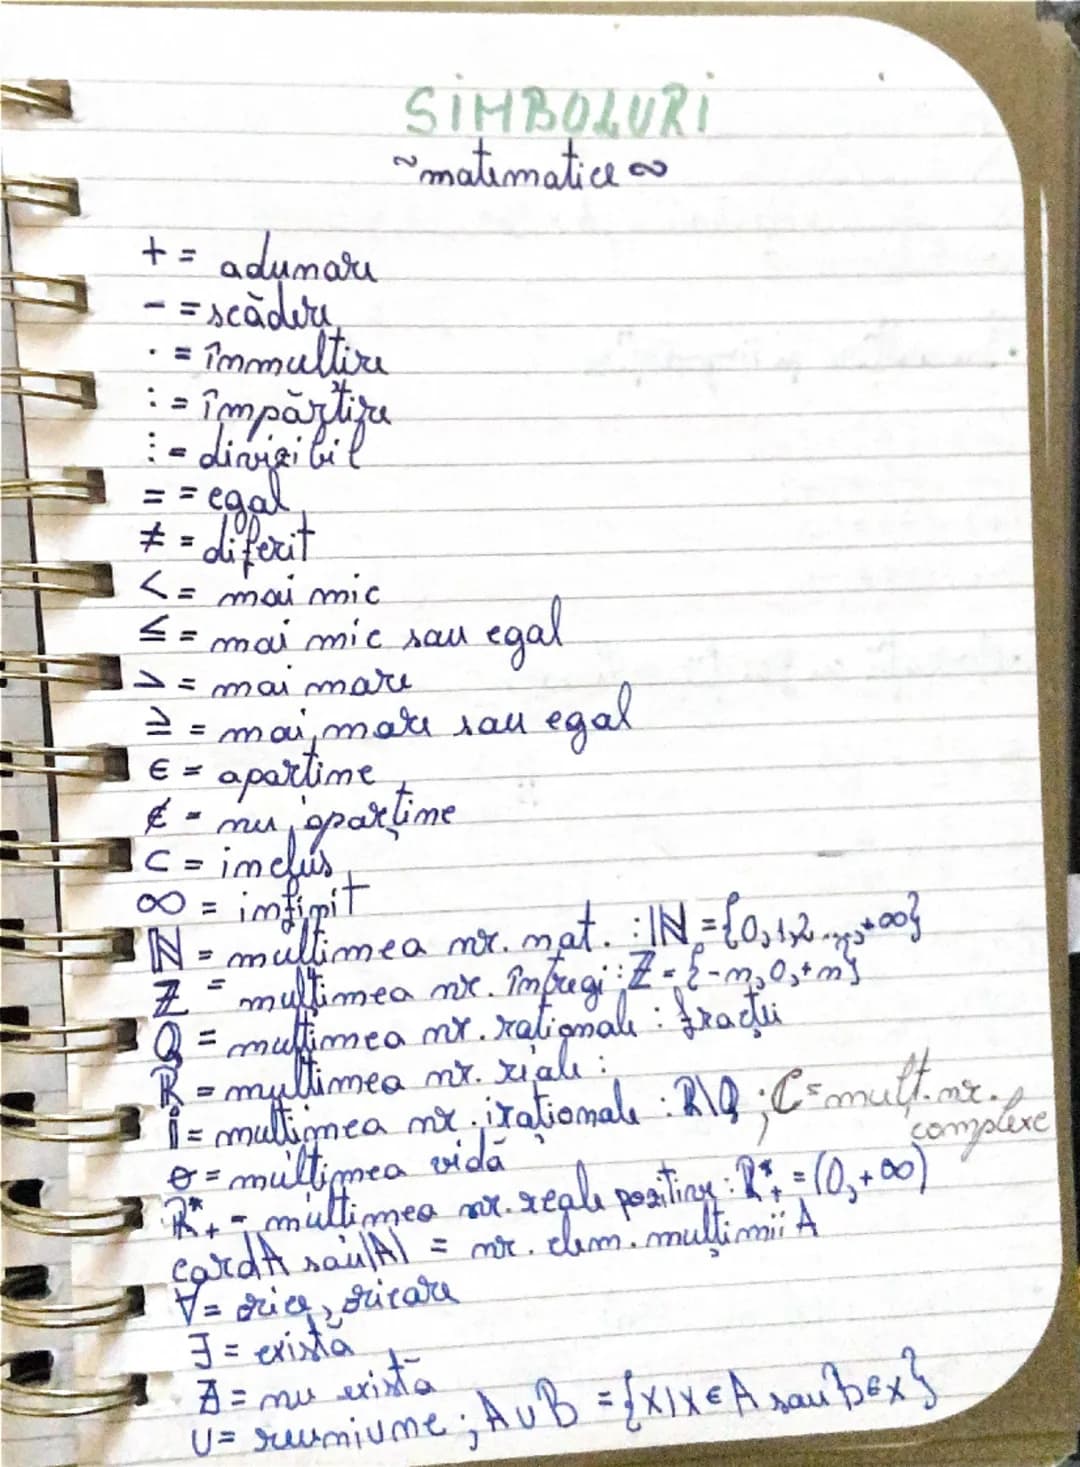 SIMBOLURI
~matematice ∞
+ = adunare
- = scădere
· = înmulțire
: = împărțire
⋮ = divizibil
= = egal
≠ = diferit
< = mai mic
≤ = mai mic sau egal
> = mai mare
≥ = mai mare sau egal
∈ = aparține
∉ = nu aparține
⊂ = inclus
∞ = infinit
ℕ = mulțimea nr. nat. : ℕ = {0,1,2...,+∞}
ℤ = mulțimea nr. întregi : ℤ = {-n,0,+n}
Q = mulțimea nr. raționale : fracții
R = mulțimea nr. reale :
I = mulțimea nr. iraționale : R\Q ; C = mult. nr. complexe
ø = mulțimea vidă
R*₊ = mulțimea nr. reale pozitive : R*₊ = (0,+∞)
cardA sau |A| = nr. elem. mulțimii A
∀ = orice, oricare
∃ = există
∄ = nu există
∪ = reuniune ; A∪B = {x|x∈A sau b∈x}